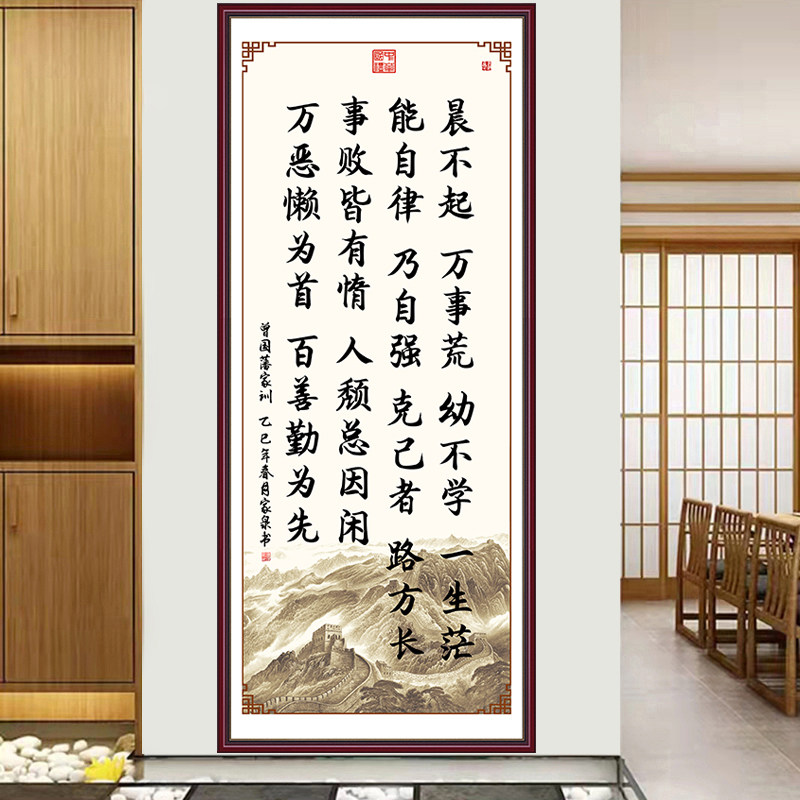 晨不起 万事荒 幼不学 一生茫
能自律 乃自强 克己者 路方长
事败皆有惰 人颓总因闲
万恶懒为首 百善勤为先
曾国藩家训 乙巳年春月家泉书